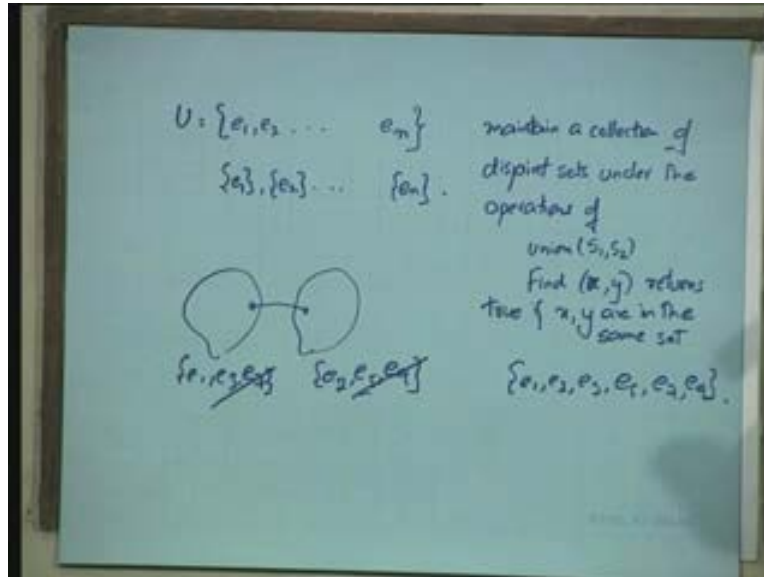 U = {e₁, e₂ ... eₙ}
{e₁}, {e₂} ... {eₙ}.
maintain a collection of
disjoint sets under the
operations of
union (S₁, S₂)
Find (x, y) returns
true if x, y are in the
same set
{e₁, e₃
{e₂, e₅, e₉}
{e₁, e₂, e₃, e₅, e₇, e₉}.